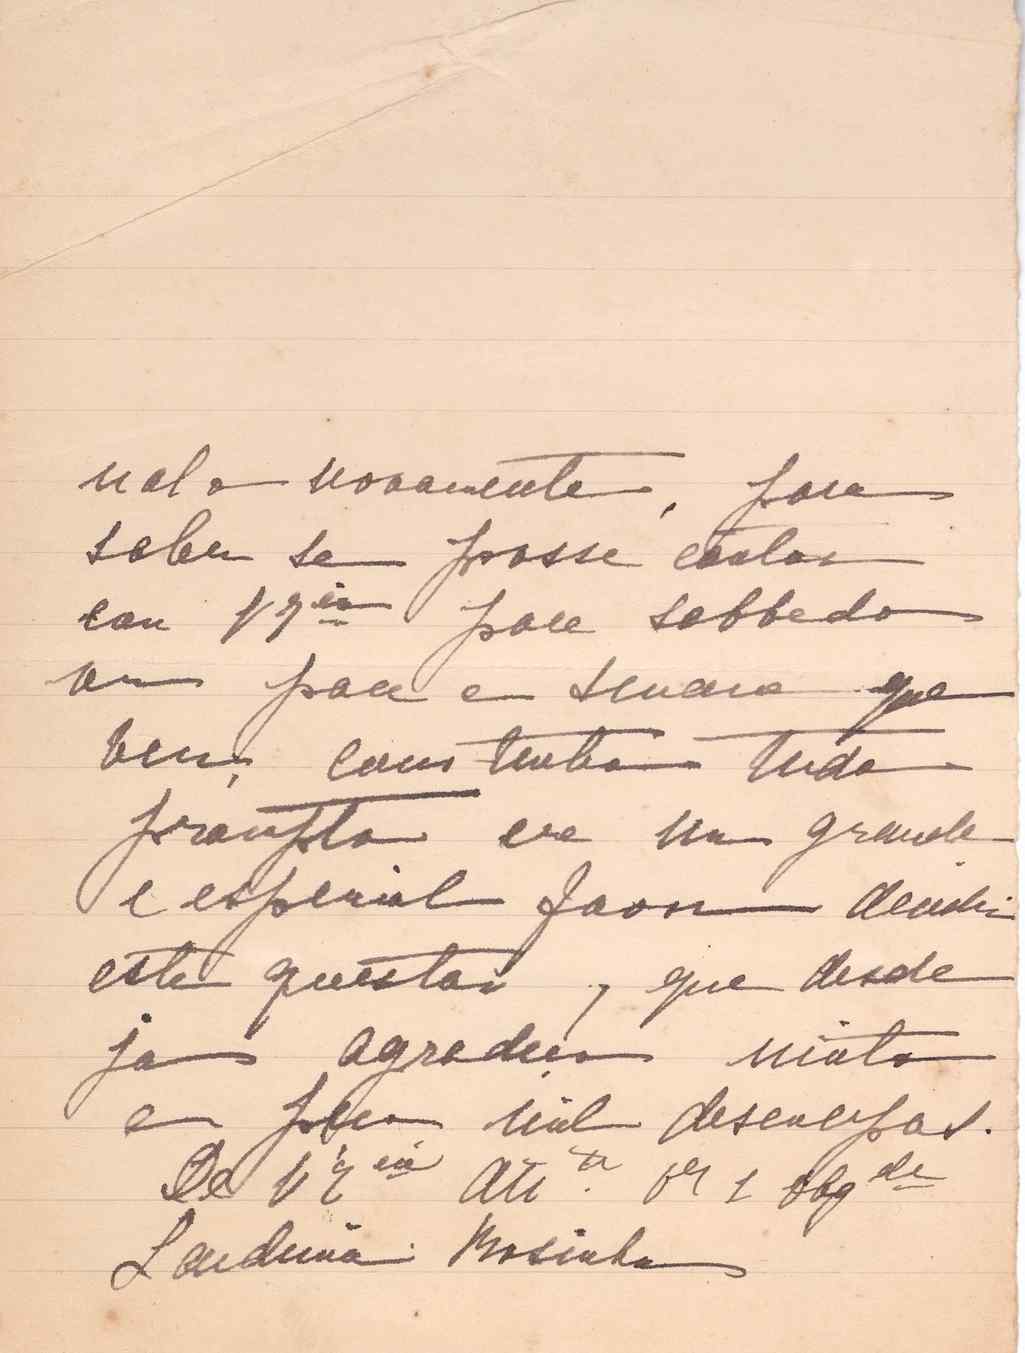 mal-o novamente, para
saber se posso contar
com V Ex.cia para sabbado
ou para a semana que
vem, constrttudo
prompto era um grande
e especial favor decidir
esta questão, que desde
já agradeço muito
e peço mil desculpas.
De V Ex.cia Att.ta V.or e obg.da
Laudinia Rosinha